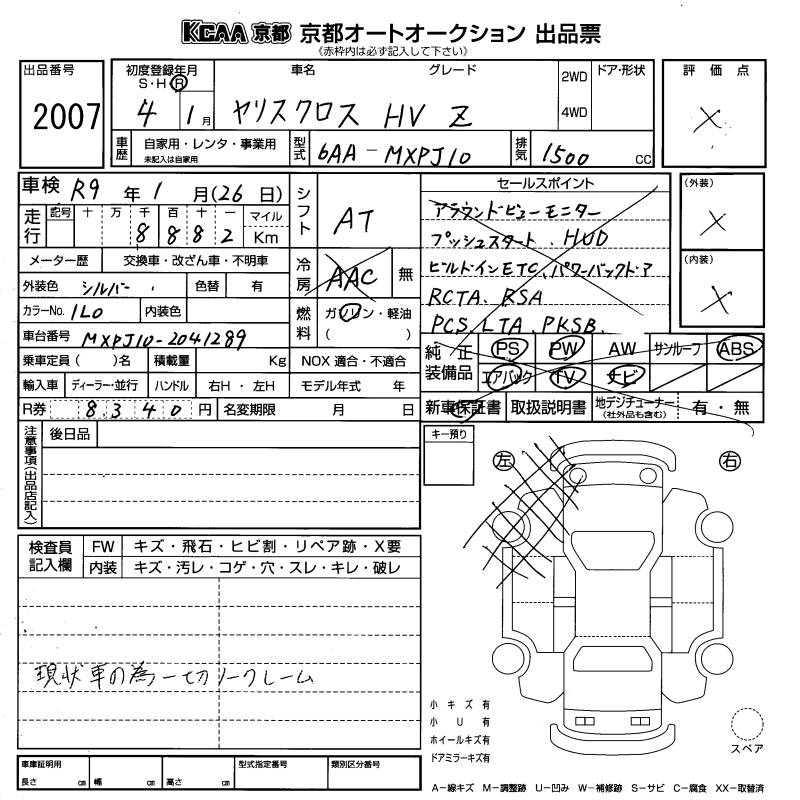 KCAA 京都 京都オートオークション 出品票
《赤枠内は必ず記入して下さい》
出品番号 初度登録年月 車名 グレード 2WD ドア・形状 評価点
S・H・R
2007 4 1月 ヤリスクロス HV Z 4WD X
車歴 自家用・レンタ・事業用 未記入は自家用 型式 6AA-MXPJ10 排気 1500 CC
車検 R9年 1月(26日) シフト AT セールスポイント (外装)
走行 記号 十 万 千 百 十 一 マイル アラウンドビューモニター X
8 8 8 2 Km プッシュスタート、HUD
メーター歴 交換車・改ざん車・不明車 冷房 AAC 無 ビルトインETC、パワーバックドア (内装)
外装色 シルバー 色替 有 RCTA、RSA X
カラーNo. 1L0 内装色 燃料 ガソリン・軽油 PCS、LTA、PKSB
車台番号 MXPJ10-2041289 ( )
乗車定員( )名 積載量 Kg NOX 適合・不適合 純正装備品 PS PW AW サンルーフ ABS
輸入車 ディーラー・並行 ハンドル 右H・左H モデル年式 年 エアバック TV ナビ
R券 8340円 名変期限 月 日 新車保証書 取扱説明書 地デジチューナー(社外品も含む) 有・無
注意事項(出品店記入) 後日品 キー預り
左 右
検査員記入欄 FW キズ・飛石・ヒビ割・リペア跡・X要
内装 キズ・汚レ・コゲ・穴・スレ・キレ・破レ
現状車の為一切ノークレーム
小キズ有
小U有
ホイールキズ有
ドアミラーキズ有
スペア
車庫証明用 型式指定番号 類別区分番号
長さ cm 幅 cm 高さ cm
A-線キズ M-調整跡 U-凹み W-補修跡 S-サビ C-腐食 XX-取替済